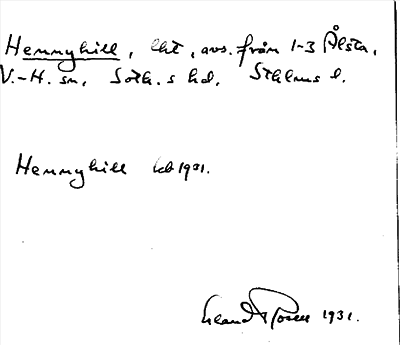 Hennyhill, lht, avs. från 1-3 Ålsta,
V.-H. sn, Soth.s hd, Sthlms l.
Hennyhill kb 1931.
Erland Rosell 1931.